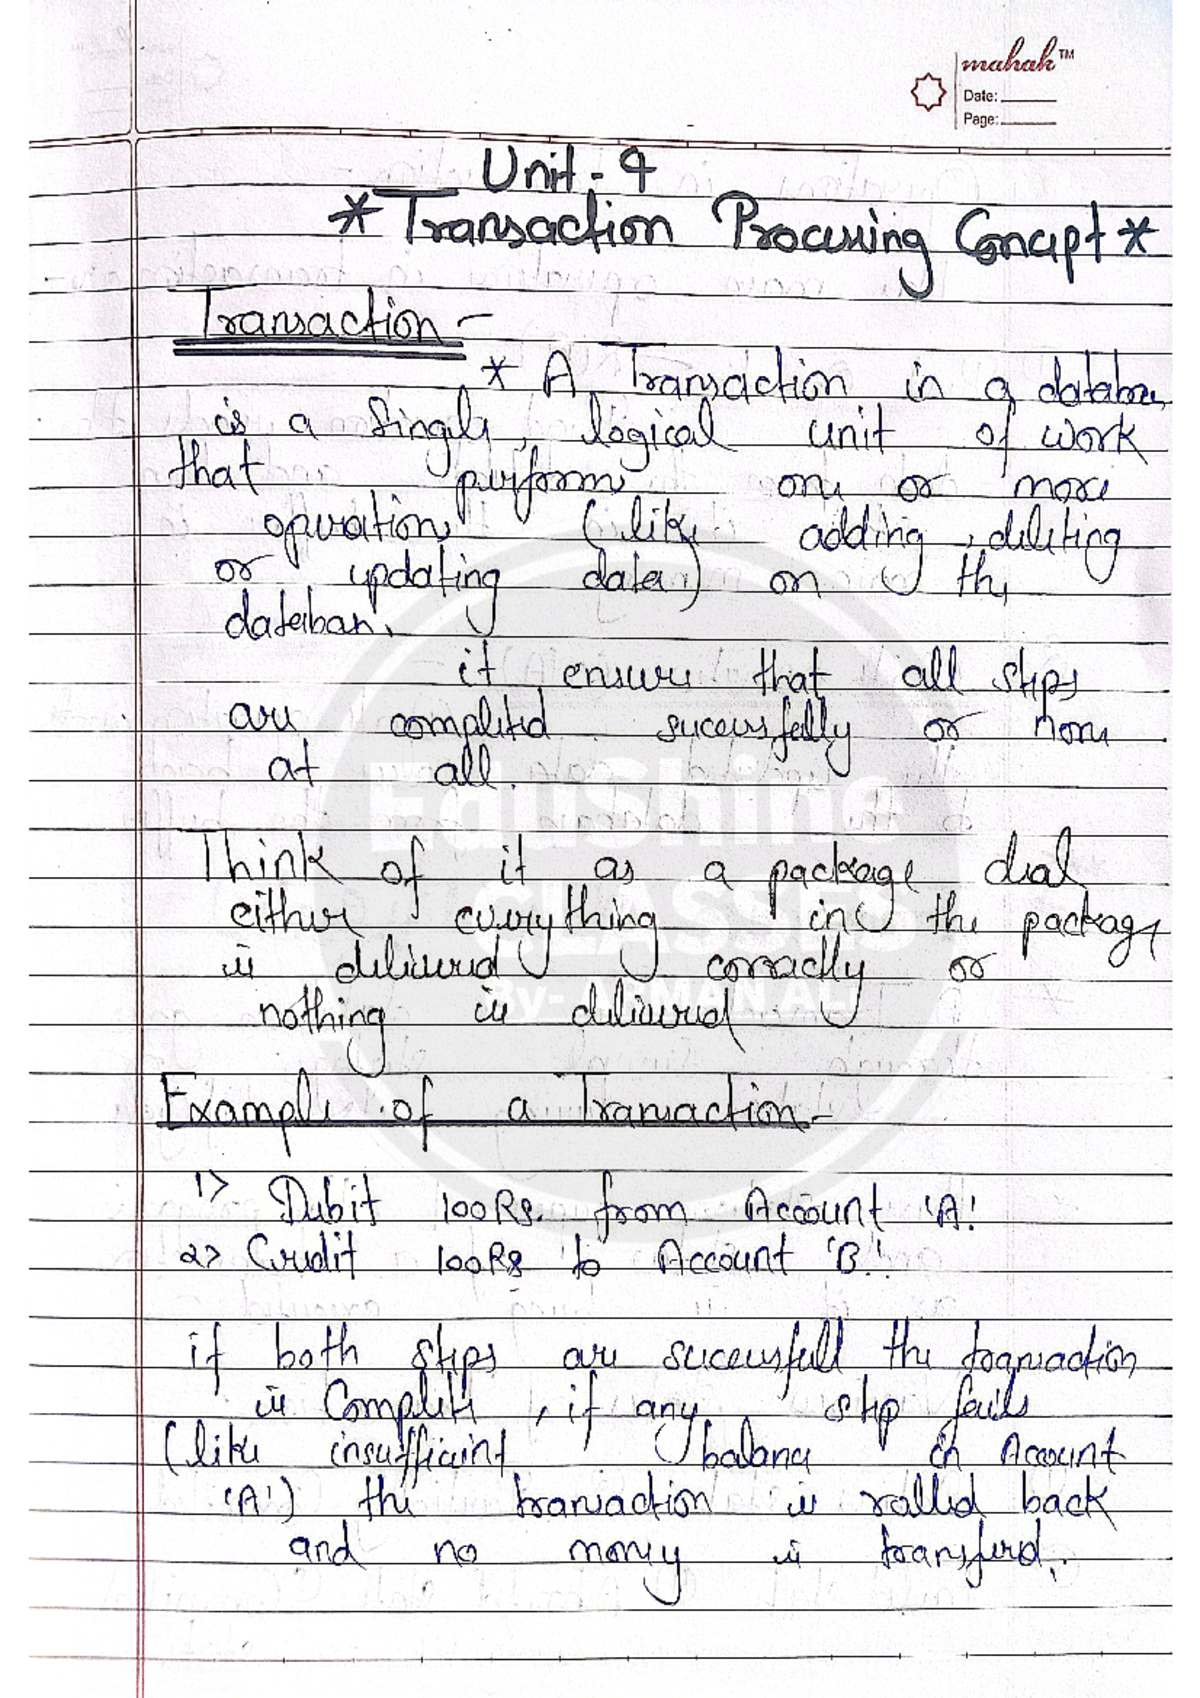 mahak™
Date:
Page:
Unit - 4
* Transaction Processing Concept *
Transaction -
* A Transaction in a database
is a Single, logical unit of work
that perform one or more
operation (like adding, deleting
or updating data) on the
database.
it ensure that all steps
are completed sucessfully or none
at all.
Think of it as a package deal
either everything in the package
is delivered correctly or
nothing is delivered
EduShine
CLASSES
By- ARMAN ALI
Example of a Transaction -
1> Debit 100Rs. from Account 'A'
2> Credit 100Rs to Account 'B'
if both steps are sucessfull the transaction
is Complete, if any step fails
(like insufficient balance in Account
'A') the transaction is rolled back
and no money is transferd.